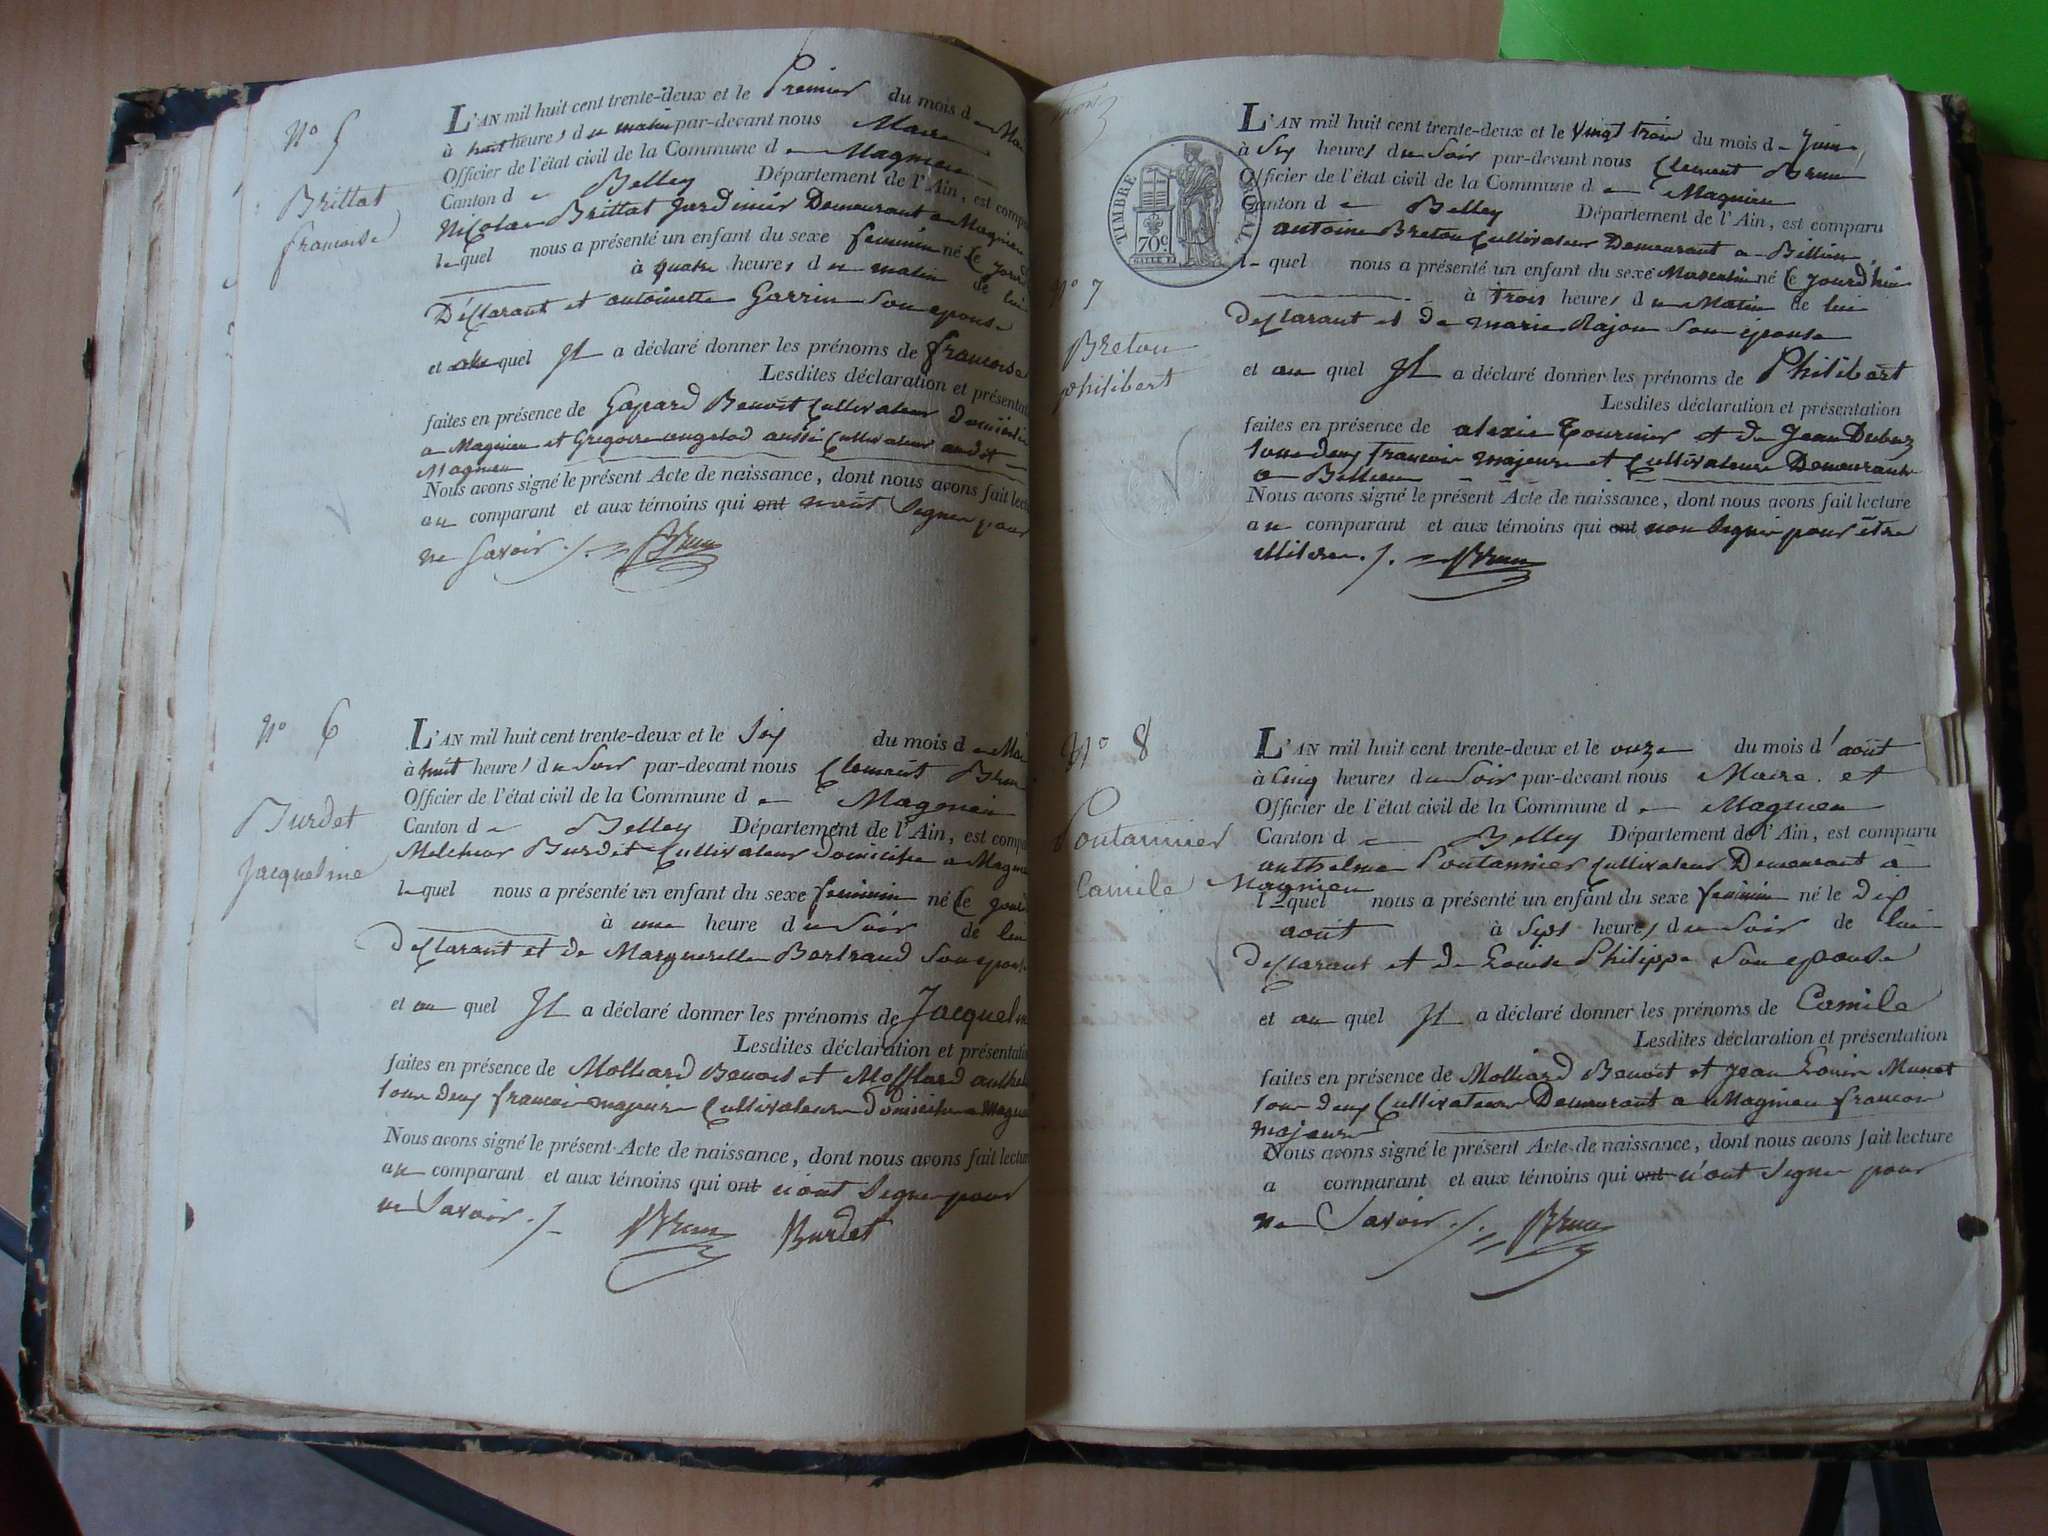 N° 5
Brillat
francoise
L'AN mil huit cent trente-deux et le Premier du mois de Mai
à huit heures du matin par-devant nous Maire
Officier de l'état civil de la Commune de Magnieu
Canton de Belley Département de l'Ain, est compa
Nicolas Brillat Jardinier Demeurant a Magnieu
lequel nous a présenté un enfant du sexe feminin né Ce jourd
à quatre heures du matin de lui
Déclarant et antoinette Garrin Son epouse
et quel Il a déclaré donner les prénoms de francoise
Lesdites déclaration et présentat
faites en présence de Gaspard Benoit Cultivateur
a Magnieu et Gregoire aussi Cultivateur audit
Magnieu
Nous avons signé le présent Acte de naissance, dont nous avons fait lect
au comparant et aux témoins qui ont Signer pour
ne Savoir ./. Brun
N° 6
Burdet
Jacqueline
L'AN mil huit cent trente-deux et le Six du mois de Mai
à huit heures du Soir par-devant nous Clement Brun
Officier de l'état civil de la Commune de Magnieu
Canton de Belley Département de l'Ain, est compa
Melchior Burdet Cultivateur domicilie a Magnie
lequel nous a présenté un enfant du sexe feminin né Ce jour
à une heure du Soir de lui
declarant et de Marguerette Bertrand Son epouse
et au quel Il a déclaré donner les prénoms de Jacqueline
Lesdites déclaration et présentati
faites en présence de Molliard Benoit et Mofflard anthel
tous deux francois majeurs Cultivateurs domicilie a Magnieu
Nous avons signé le présent Acte de naissance, dont nous avons fait lectur
au comparant et aux témoins qui ont n'ont Signer pour
ne Savoir ./. Brun Burdet
TIMBRE ROYAL
70c
N° 7
Breton
philibert
L'AN mil huit cent trente-deux et le Vingt trois du mois de Juin
à Six heures du Soir par-devant nous Clement Brun
Officier de l'état civil de la Commune de Magnieu
Canton de Belley Département de l'Ain, est comparu
antoine Breton Cultivateur Demeurant a Billieu
lequel nous a présenté un enfant du sexe Masculin né Ce jourd'hui
à trois heures du Matin de lui
declarant et de marie Rajon Son épouse
et au quel Il a déclaré donner les prénoms de Philibert
Lesdites déclaration et présentation
faites en présence de alexis Tournier et de Jean Dubuz
tous deux francois majeurs et Cultivateurs Demeurants
a Billieu
Nous avons signé le présent Acte de naissance, dont nous avons fait lecture
au comparant et aux témoins qui ont non Signer pour être
illitere ./. Brun
N° 8
Poutannier
Camile
L'AN mil huit cent trente-deux et le onze du mois d'août
à Cinq heures du Soir par-devant nous Maire et
Officier de l'état civil de la Commune de Magnieu
Canton de Belley Département de l'Ain, est comparu
anthelme Poutannier Cultivateur Demeurant à
Magnieu
lequel nous a présenté un enfant du sexe feminin né le dix
août à Sept heures du Soir de lui
declarant et de Louise Philippe Son epouse
et au quel Il a déclaré donner les prénoms de Camile
Lesdites déclaration et présentation
faites en présence de Molliard Benoit et Jean Louis Munet
tous deux Cultivateurs Demeurant a Magnieu francois
majeurs
Nous avons signé le présent Acte de naissance, dont nous avons fait lecture
a comparant et aux témoins qui ont n'ont Signer pour
ne Savoir ./. Brun